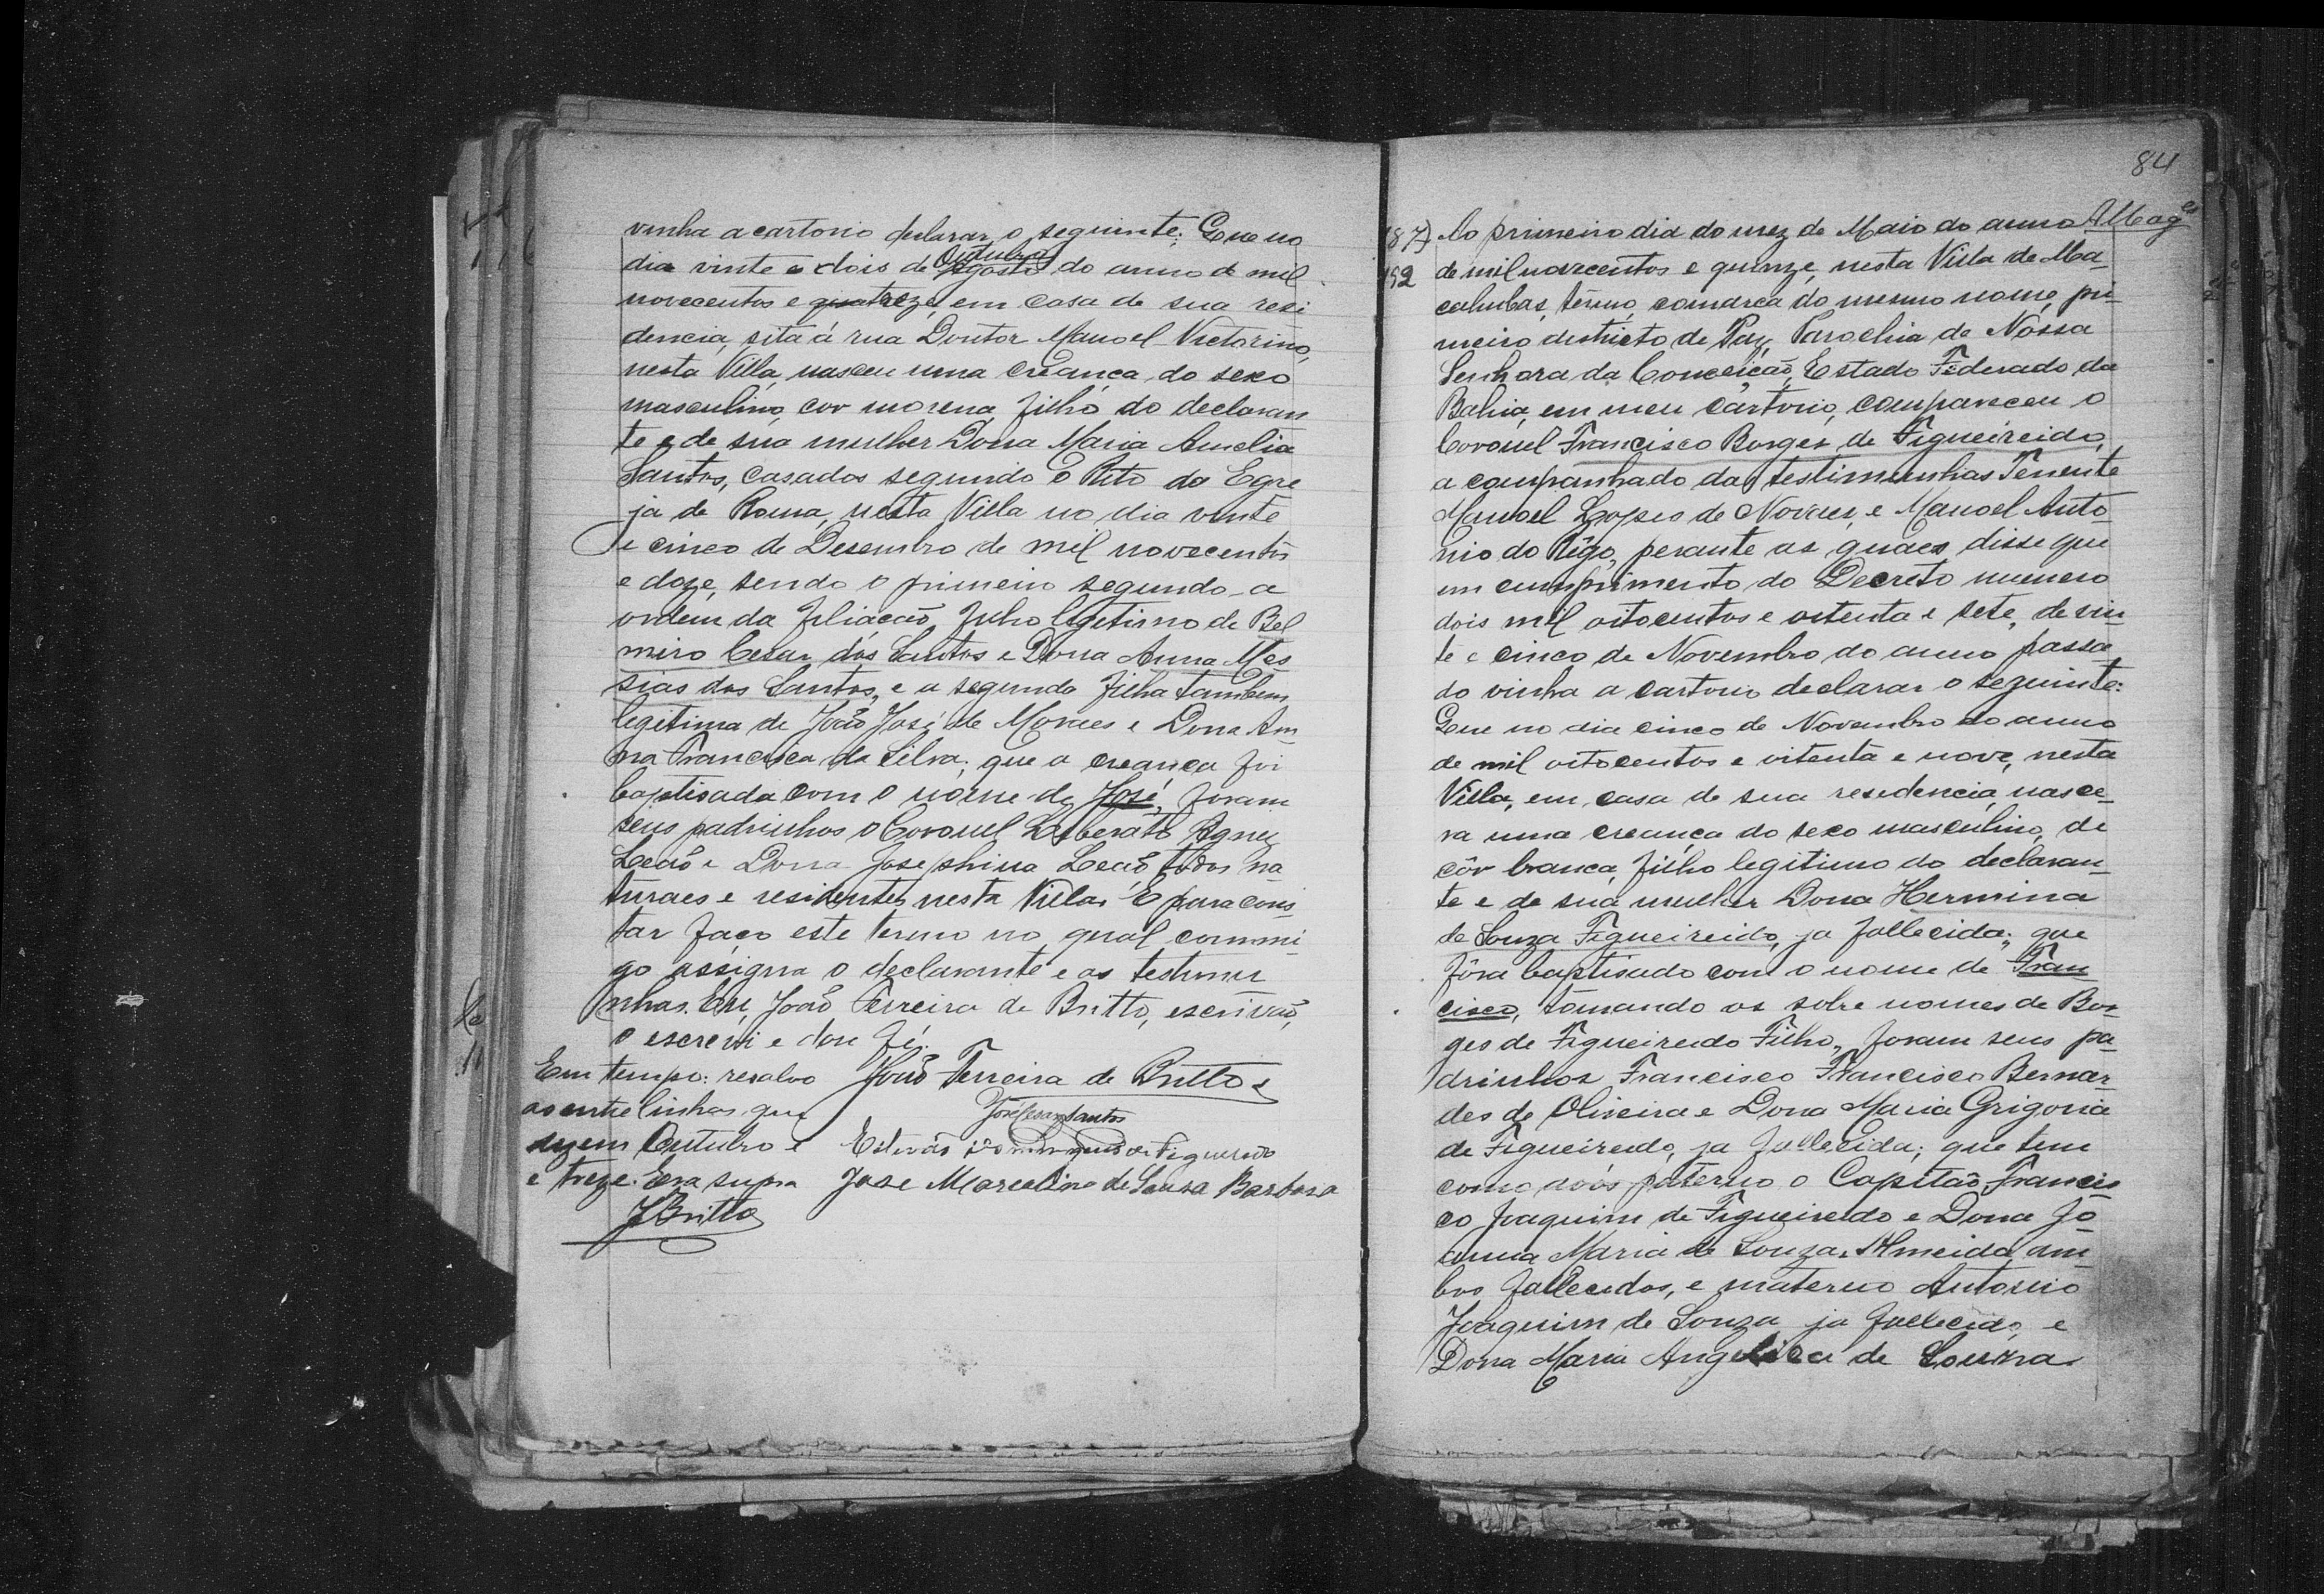 vinha a cartorio declarar o seguinte: Que no
Outubro
dia vinte e dois de Agosto do anno de mil
novecentos e quatreze, em casa de sua resi
dencia, sita á rua Doutor Manoel Victorino,
nesta Villa, nasceu uma creança do sexo
masculino, cor morena, filho do declaran
te e de sua mulher Dona Maria Amelia
Santos, casados segundo o Rito da Egre
ja de Roma, nesta Villa no dia vinte
e cinco de Desembro de mil novecentos
e doze, sendo o primeiro segundo a
ordem da filiação, filho legitimo de Bel
miro Cesar dos Santos e Dona Anna Mes
sias dos Santos, e a segunda filha tambem
legitima de João José de Moraes e Dona An
na Francisca da Silva; que a creança foi
baptisada com o nome de José, foram
seus padrinhos o Coronel Liberato Agnez
Leão e Dona Josephina Leão todos na
turaes e residentes nesta Villa. E para cons
tar faço este termo no qual commi
go assigna o declarante e as testimu
nhas. Eu, João Ferreira de Britto, escrivão,
o escrevi e dou fé.
Em tempo: resalvo João Ferreira de Britto
as entrelinhas que José Cesar Santos
dizem Outubro e Estevão de Figueredo
e treze. Era supra Jose Marcelino de Sousa Barbosa
JBritto
84
187) Ao primeiro dia do mez de Maio do anno
192 de mil novecentos e quinze, nesta Villa de Ma-
cahubas, termo, comarca do mesmo nome, pri-
meiro districto de Paz, Parochia de Nossa
Senhora da Conceição, Estado Federado da
Bahia, em meu cartorio, compareceu o
Coronel Francisco Borges de Figueireido,
a companhado das testimunhas Tenente
Manoel Lopes de Novaes, e Manoel Anto-
nio do Rêgo, perante as quaes disse que
em cumprimento do Decreto numero
dois mil oitocentos e oitenta e sete, de vin-
te e cinco de Novembro do anno passa-
do vinha a cartorio declarar o seguinte:
Que no dia cinco de Novembro do anno
de mil oitocentos e oitenta e nove, nesta
Villa, em casa de sua residencia, nasce-
ra uma creança do sexo masculino, de
côr branca, filho legitimo do declaran-
te e de sua mulher Dona Hermina
de Souza Figueireido, ja fallecida; que
fôra baptisado com o nome de Fran
cisco, tomando os sobre nomes de Bor-
ges de Figueiredo Filho, foram seus pa-
drinhos Francisco Francisco Bernar-
des de Oliveira e Dona Maria Grigoria
de Figueiredo, ja fallecida; que tem
como avós paterno o Capitão Francis
co Joaquim de Figueiredo e Dona Jo-
anna Maria de Souza Almeida, am-
bos fallecidos, e materno Antonio
Joaquim de Souza ja fallecido, e
Dona Maria Angelica de Souza